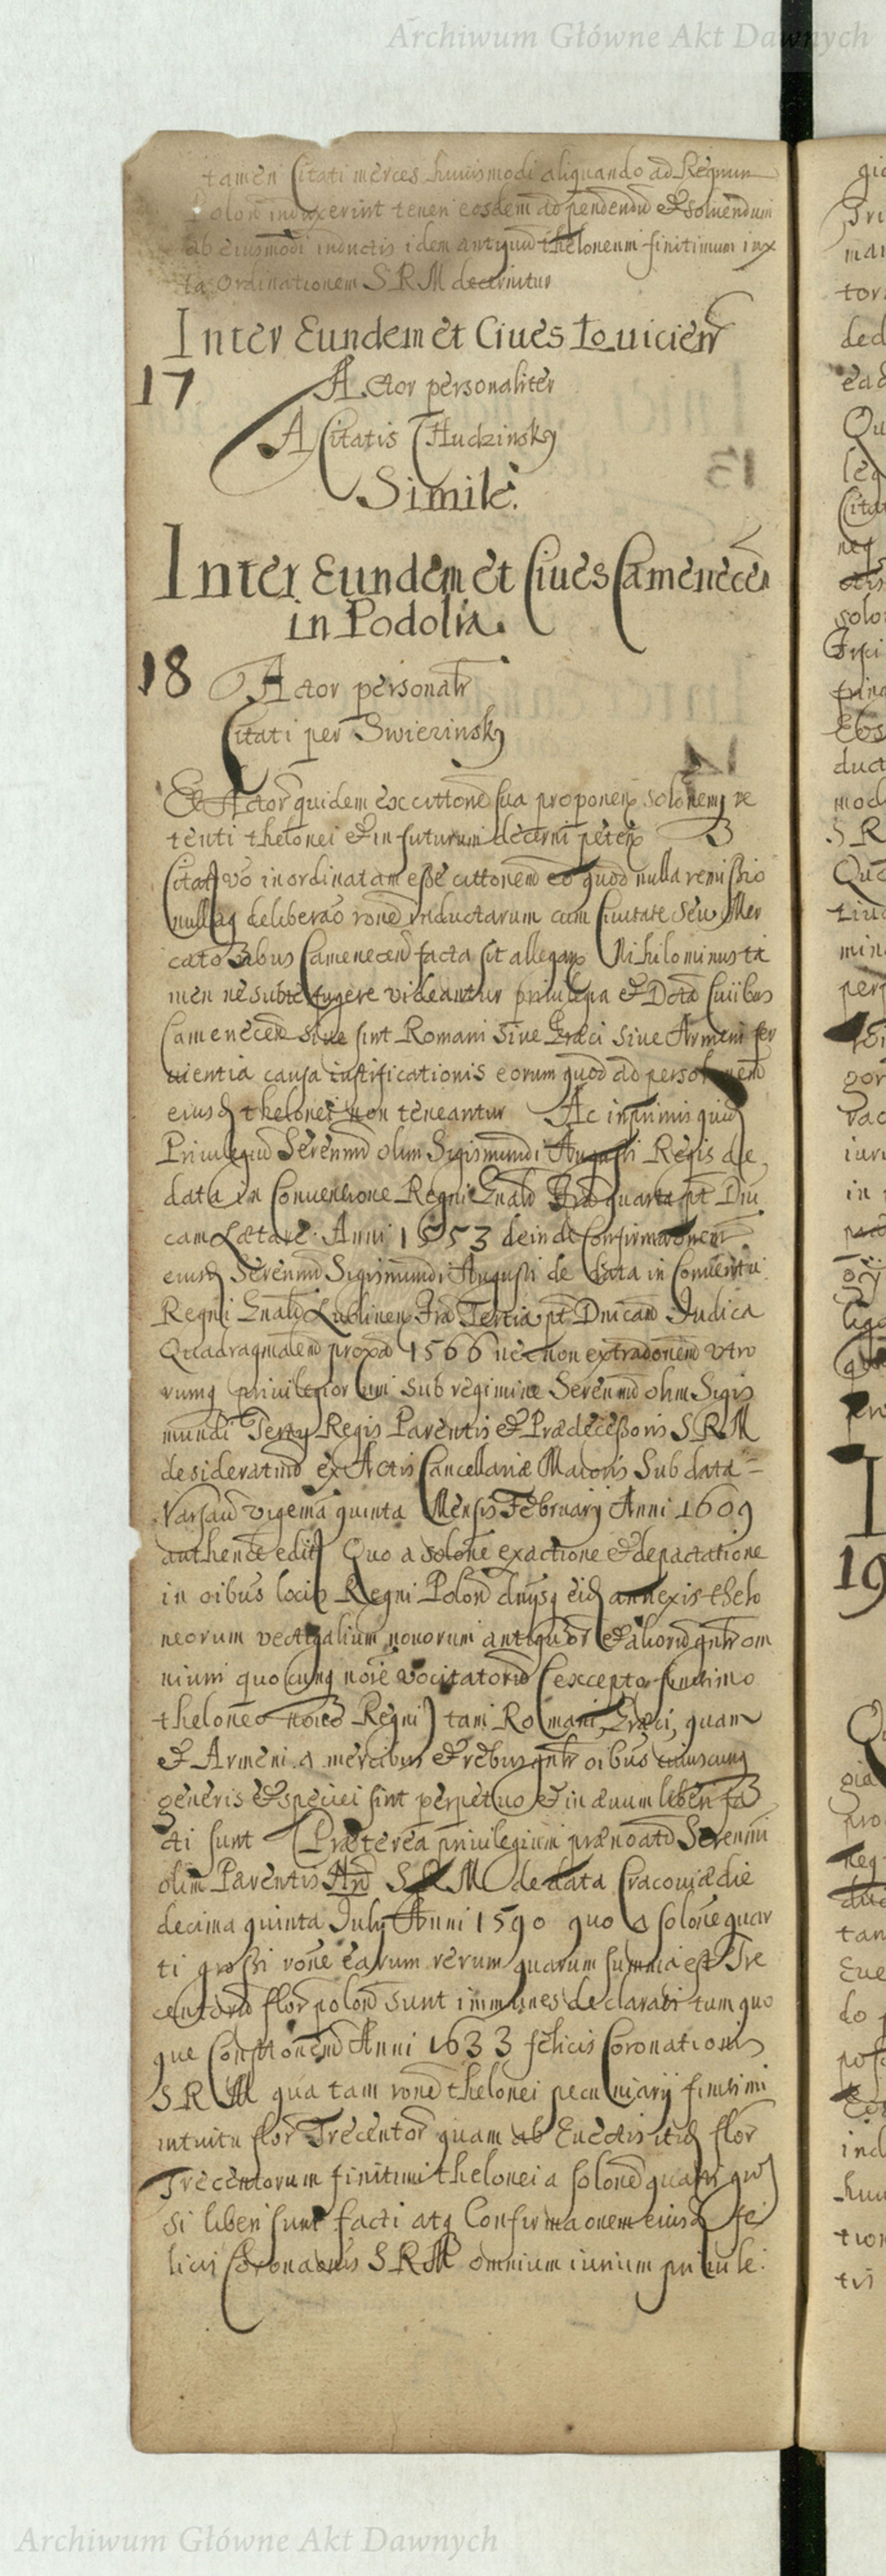 Archiwum Główne Akt Dawnych
tamen Citati merces huiusmodi aliquando ad Regnum
Polon induxerint teneri eosdem ad pendendū & soluendum
ab eiusmodi inductis idem antiquū theloneum finitimum iux
ta Ordinationem S R M decernitur
Inter Eundem et Ciues Louicien
17
Actor personaliter
A Citatis Hudzinsky
Simile.
Inter Eundem et Ciues Camenecen
in Podolia.
18
Actor personalr
Citati per Swierinsky
Et Actor quidem ex cittone sua proponen solonem re
tenti thelonei & in futurum decerni peten
Citati vo inordinatam esse cittonem eo quod nulla remissio
nullaq deliberao rone inductarum cum Ciuitate seu Mer
catoribus Camenecen facta sit allegan Nihilominus ta
men ne subterfugere videantur priuilegia & Dcta Ciuibus
Camenecen siue sint Romani siue Græci siue Armeni ser
uientia causa iustificationis eorum quod ad persolonem
eiusd thelonei non teneantur Ac inprimis quid
Priuilegiū Serenmi olim Sigismundi Augusti Regis de
data in Conuentione Regni Gnali Fria quarta pt Dni
cam Lætare Anni 1553 deinde Confirmationem
eiusd Serenmi Sigismundi Augusti de data in Conuentu
Regni Gnali Lublinen Fria Tertia pt Dnicam Iudica
Quadragmalem proxa 1566 nec non extradonem vtro
rumq priuilegior cum sub regimine Serenmi olim Sigis
mundi Tertij Regis Parentis & Prædecessoris S R M
desideratiud ex Actis Cancellariæ Maioris Sub data
Varsaū vigema quinta Mensis February Anni 1609
authence edit Quo a solone exactione & depactatione
in oibus locis Regni Polon dnysq eid annexis thelo
neorum vectigalium nouorum antiquor & aliorū gnlr om
nium quocunq noie vocitatorū (excepto finitimo
theloneo noico Regni) tam Romani, Græci, quam
& Armeni a mercibus & rebus gnlr oibus cuiuscunq
generis & speciei sint perpetuo & in æuum liberi fa
cti sunt Præterea priuilegium prænoatd Serenmi
olim Parentis S R M de data Cracouiæ die
decima quinta July Anni 1590 quo a solone quar
ti grossi rone earum rerum quarum summa est Tre
centorū flor polon sunt immunes declarati tum quo
que Consttionem Anni 1633 felicis Coronationis
S R M qua tam rone thelonei pecuniarij finitimi
intuitu flor Trecentor quam ab Euectis itid flor
Trecentorum finitimi thelonei a solone quarti gros
si liberi sunt facti atq Confirmaonem eiusd fe
licis Coronaonis S R M omnium iurium priuile
19
Archiwum Główne Akt Dawnych